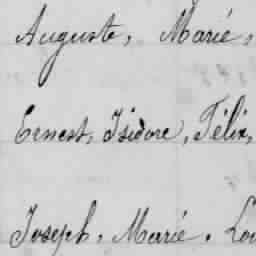 Auguste, Marié,
Ernest, Isidore, Félix,
Joseph, Marié, Lou